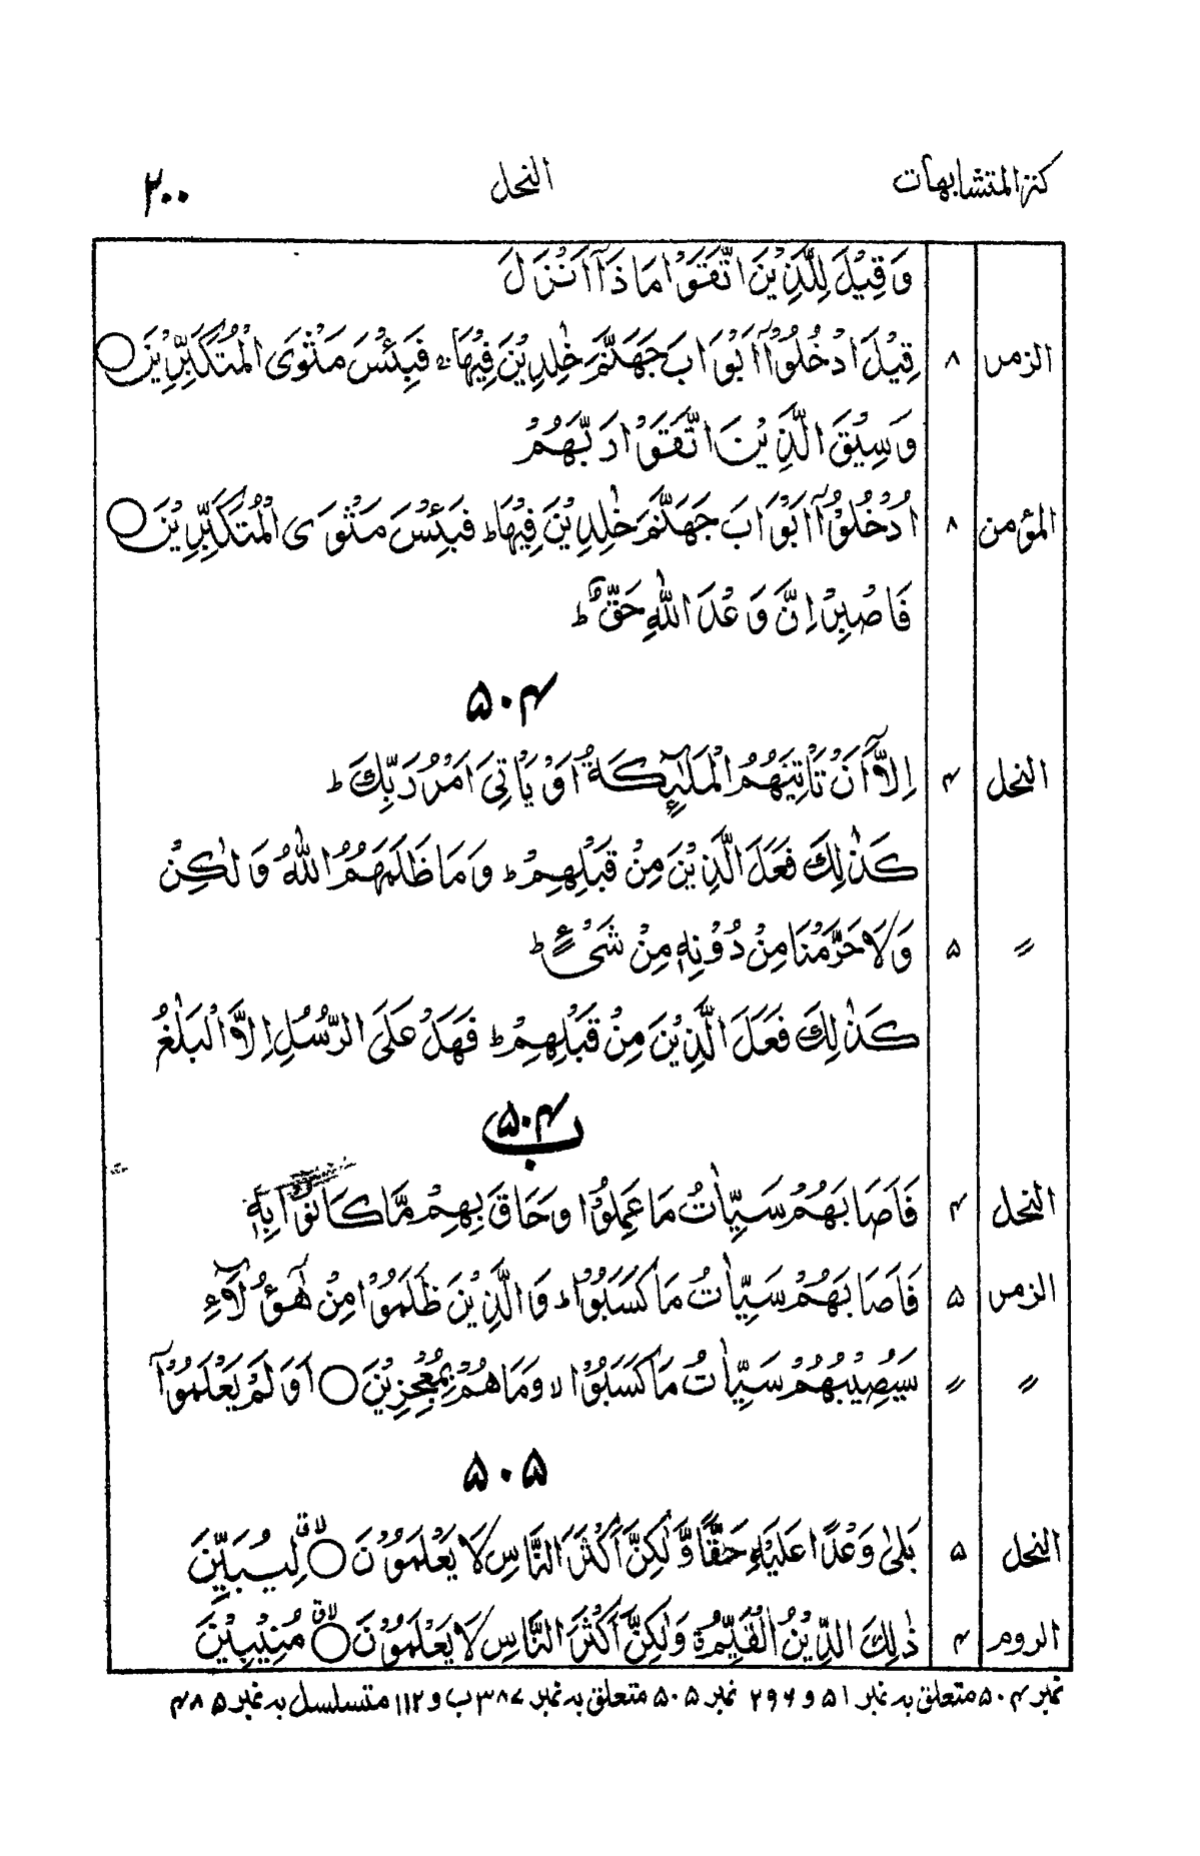 كنز المتشابهات النحل ٢٠٠
وَقِيْلَ لِلَّذِيْنَ اتَّقَوْا مَاذَآ اَنْزَلَ
الزمر ٨ قِيْلَ ادْخُلُوْٓا اَبْوَابَ جَهَنَّمَ خٰلِدِيْنَ فِيْهَا ۚ فَبِئْسَ مَثْوَى الْمُتَكَبِّرِيْنَ ○
وَسِيْقَ الَّذِيْنَ اتَّقَوْا رَبَّهُمْ
المؤمن ٨ اُدْخُلُوْٓا اَبْوَابَ جَهَنَّمَ خٰلِدِيْنَ فِيْهَا ؕ فَبِئْسَ مَثْوَى الْمُتَكَبِّرِيْنَ ○
فَاصْبِرْ اِنَّ وَعْدَ اللّٰهِ حَقٌّ ؕ
۵۰۴
النحل ۴ اِلَّآ اَنْ تَاْتِيَهُمُ الْمَلٰٓئِكَةُ اَوْ يَاْتِيَ اَمْرُ رَبِّكَ ؕ
كَذٰلِكَ فَعَلَ الَّذِيْنَ مِنْ قَبْلِهِمْ ؕ وَمَا ظَلَمَهُمُ اللّٰهُ وَلٰكِنْ
〃 ۵ وَلَا حَرَّمْنَا مِنْ دُوْنِهٖ مِنْ شَىْءٍ ؕ
كَذٰلِكَ فَعَلَ الَّذِيْنَ مِنْ قَبْلِهِمْ ؕ فَهَلْ عَلَى الرُّسُلِ اِلَّا الْبَلٰغُ
۵۰۴ ب
النحل ۴ فَاَصَابَهُمْ سَيِّاٰتُ مَا عَمِلُوْا وَحَاقَ بِهِمْ مَّا كَانُوْا بِهٖ
الزمر ۵ فَاَصَابَهُمْ سَيِّاٰتُ مَا كَسَبُوْا ؕ وَالَّذِيْنَ ظَلَمُوْا مِنْ هٰٓؤُلَآءِ
〃 〃 سَيُصِيْبُهُمْ سَيِّاٰتُ مَا كَسَبُوْا ۙ وَمَا هُمْ بِمُعْجِزِيْنَ ○ اَوَلَمْ يَعْلَمُوْٓا
۵۰۵
النحل ۵ بَلٰى وَعْدًا عَلَيْهِ حَقًّا وَّلٰكِنَّ اَكْثَرَ النَّاسِ لَا يَعْلَمُوْنَ ○ۙ لِيُبَيِّنَ
الروم ۴ ذٰلِكَ الدِّيْنُ الْقَيِّمُ ۙ وَلٰكِنَّ اَكْثَرَ النَّاسِ لَا يَعْلَمُوْنَ ○ۙ مُنِيْبِيْنَ
نمبر ۵۰۴ متعلق بہ نمبر ۵۱ و ۲۹۶ نمبر ۵۰۵ متعلق بہ نمبر ۳۸۷ ب و ۱۱۲ متسلسل بہ نمبر ۴۸۵